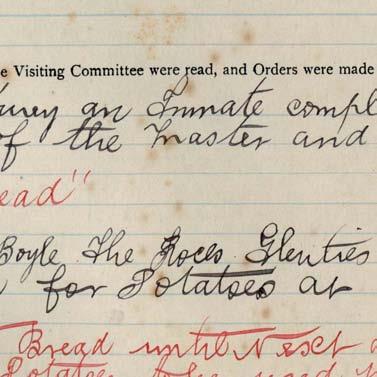 e Visiting Committee were read, and Orders were made
an Inmate compl
of the Master and
ead"
Boyle The Rocs Glenties
for Potatoes at
Bread until Next
Potatoes to be used